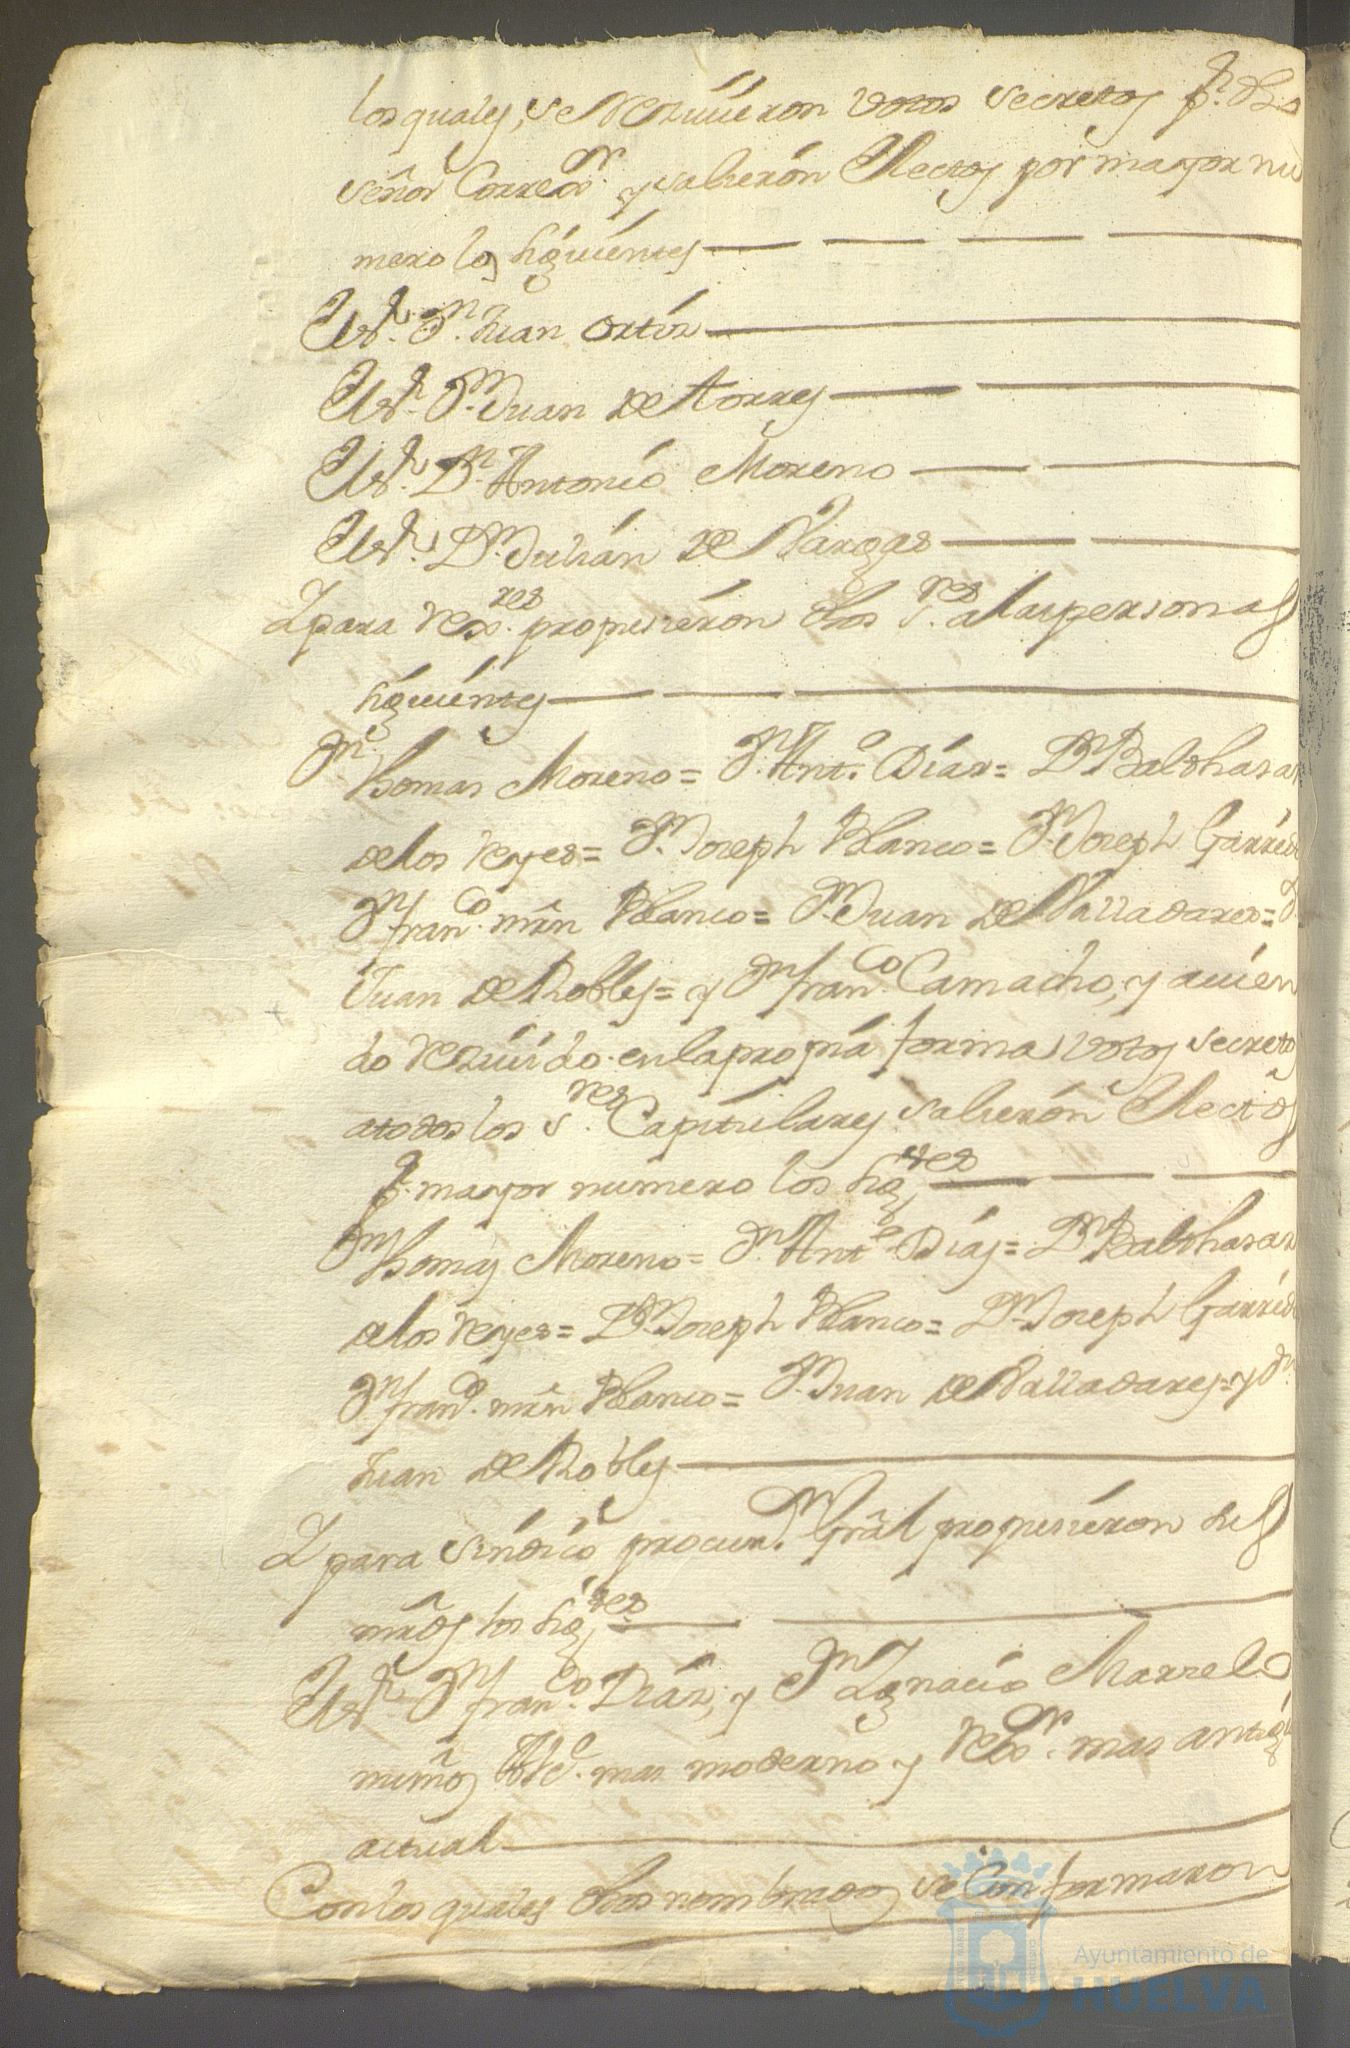 los quales, se Rezivieron votos secretos pr. dho
señor Corregr. y salieron Electos por mayor nu
mero los siguientes
Dn. Juan Ortiz
Dn. Juan de Torres
Dn. Antonio Moreno
Dn. Julián de Vargas
Y para Rexres. propusieron dhos sres. a las personas
siguientes
Dn. thomas Moreno = Dn. Anto. Díaz = Dn. Balthasar
de los Reyes = Dn. Joseph Blanco = Dn. Joseph Garrido
Dn. franco. mrn Blanco = Dn. Juan de Valladares = D
Juan de Robles = y Dn. franco. Camacho, y avien
do Rezivido en la propria forma votos secretos
a todos los sres. Capitulares salieron Electos
pr. mayor numero los sigtes
Dn. thomas Moreno = Dn. Anto. Díaz = Dn. Balthasar
de los Reyes = Dn. Joseph Blanco = Dn. Joseph Garrido
Dn. franco. mrn Blanco = Dn. Juan de Valladares = y Dn.
Juan de Robles
Y para síndico procur. Grãl propusieron dhs
los sigtes
Dn. franco. Díaz, y Dn. Ygnacio
mas moderno y Rexr. mas antigu
actual
Con los quales dhos nombrados se Conformaron
Ayuntamiento de
HUELVA